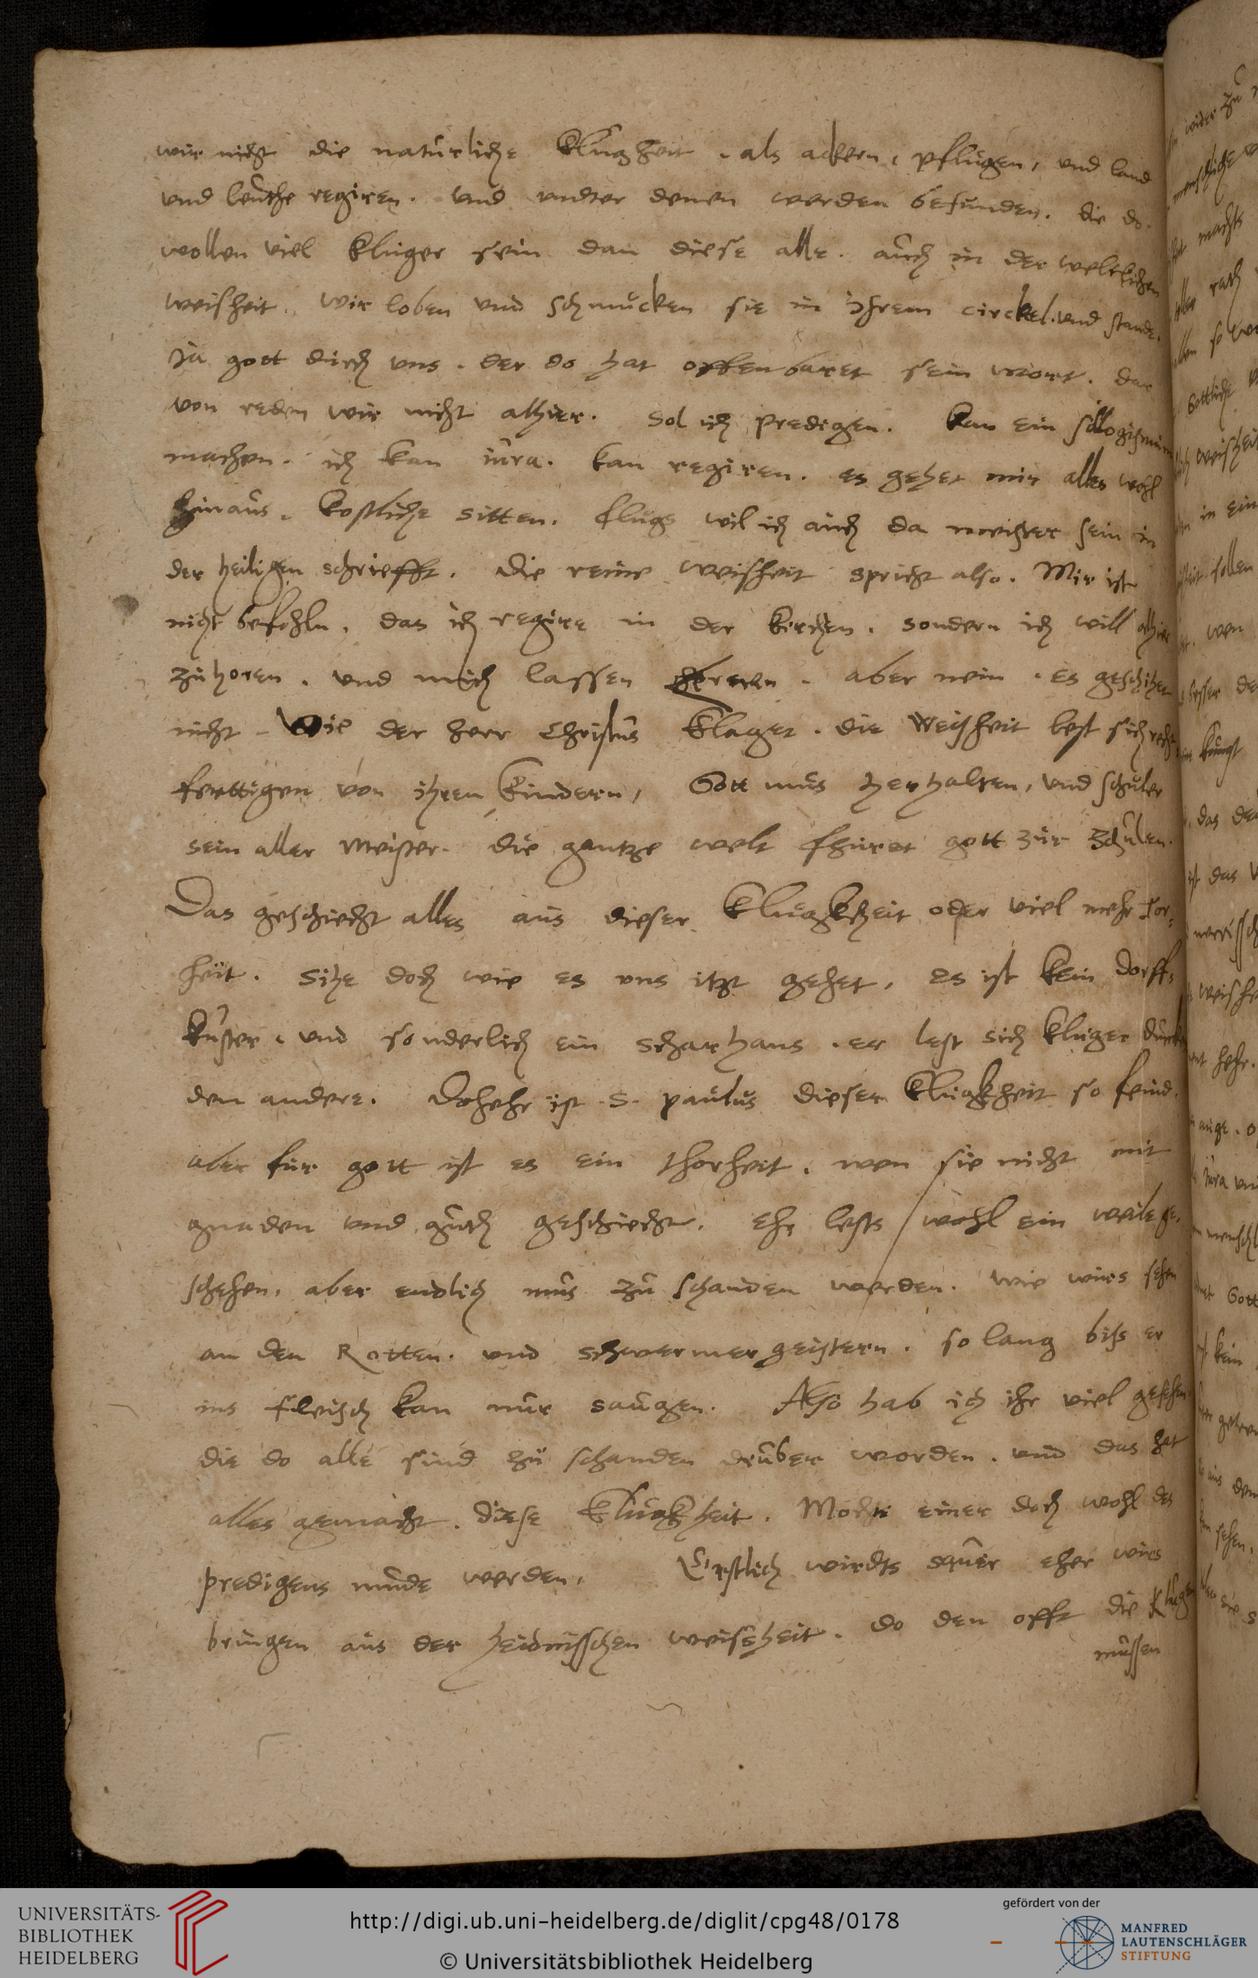 wir nicht die naturliche klugheit. als ackern, pflugen, und land
und leuthe regiren. und undter denen werden befunden. die do
wollen viel kluger sein dan diese alle. auch in der weltlichen
weisheit. wir loben und schmucken sie in ihrem circkel. und stande.
Ja gott durch uns. der do hat offenbaret sein wort. dar
von reden wir nicht alhier. Sol ich predigen. kan ein sillogismum
machen. ich kan iura. kan regiren. es gehet mir alles wohl
hinaus. kostliche sitten. flugs wil ich auch da meister sein in
der heiligen schriefft. die reine weisheit spricht also. Mir ist
nicht befohln. das ich regire in der kirchen. sondern ich will alhier
zuhoren. und mich lassen leren. aber nein. es geschihet
nicht. Wie der herr Christus klaget. die Weisheit lest sich recht
fertigen von ihren kindern, Gott mus herhalten, und schuler
sein aller Meister. die gantze welt fhuret gott zur Schulen.
Das geschiecht alles aus dieser klugkheit oder viel mehr tor-
heit. Sihe doch wie es uns itzt gehet, es ist kein dorff-
kuster. und sonderlich ein scharhans. er lest sich kluger dunken
den andere. Dohehr ist S. paulus dieser klugkheit so feind.
aber fur gott ist es ein thorheit. wen sie nicht mit
gnaden und gunst geschiecht. Ehr lests wohl ein weile ge-
schehen, aber endlich mus zu schanden werden. wie wirs sehen
an den Rotten. und schwermergeistern. so lang bis er
ins fleisch kan nur saugen. Also hab ich ihr viel gesehen
die do alle sind zu schanden druber worden. und das hat
alles gemacht. diese klugkheit. Mocht einer doch wohl des
predigens mude werden, Erstlich wirdts saur eher wirs
bringen aus der heidnisschen weisheit. do den offt die klugen
mussen
UNIVERSITÄTS-
BIBLIOTHEK
HEIDELBERG
http://digi.ub.uni-heidelberg.de/diglit/cpg48/0178
© Universitätsbibliothek Heidelberg
gefördert von der
MANFRED
LAUTENSCHLÄGER
STIFTUNG